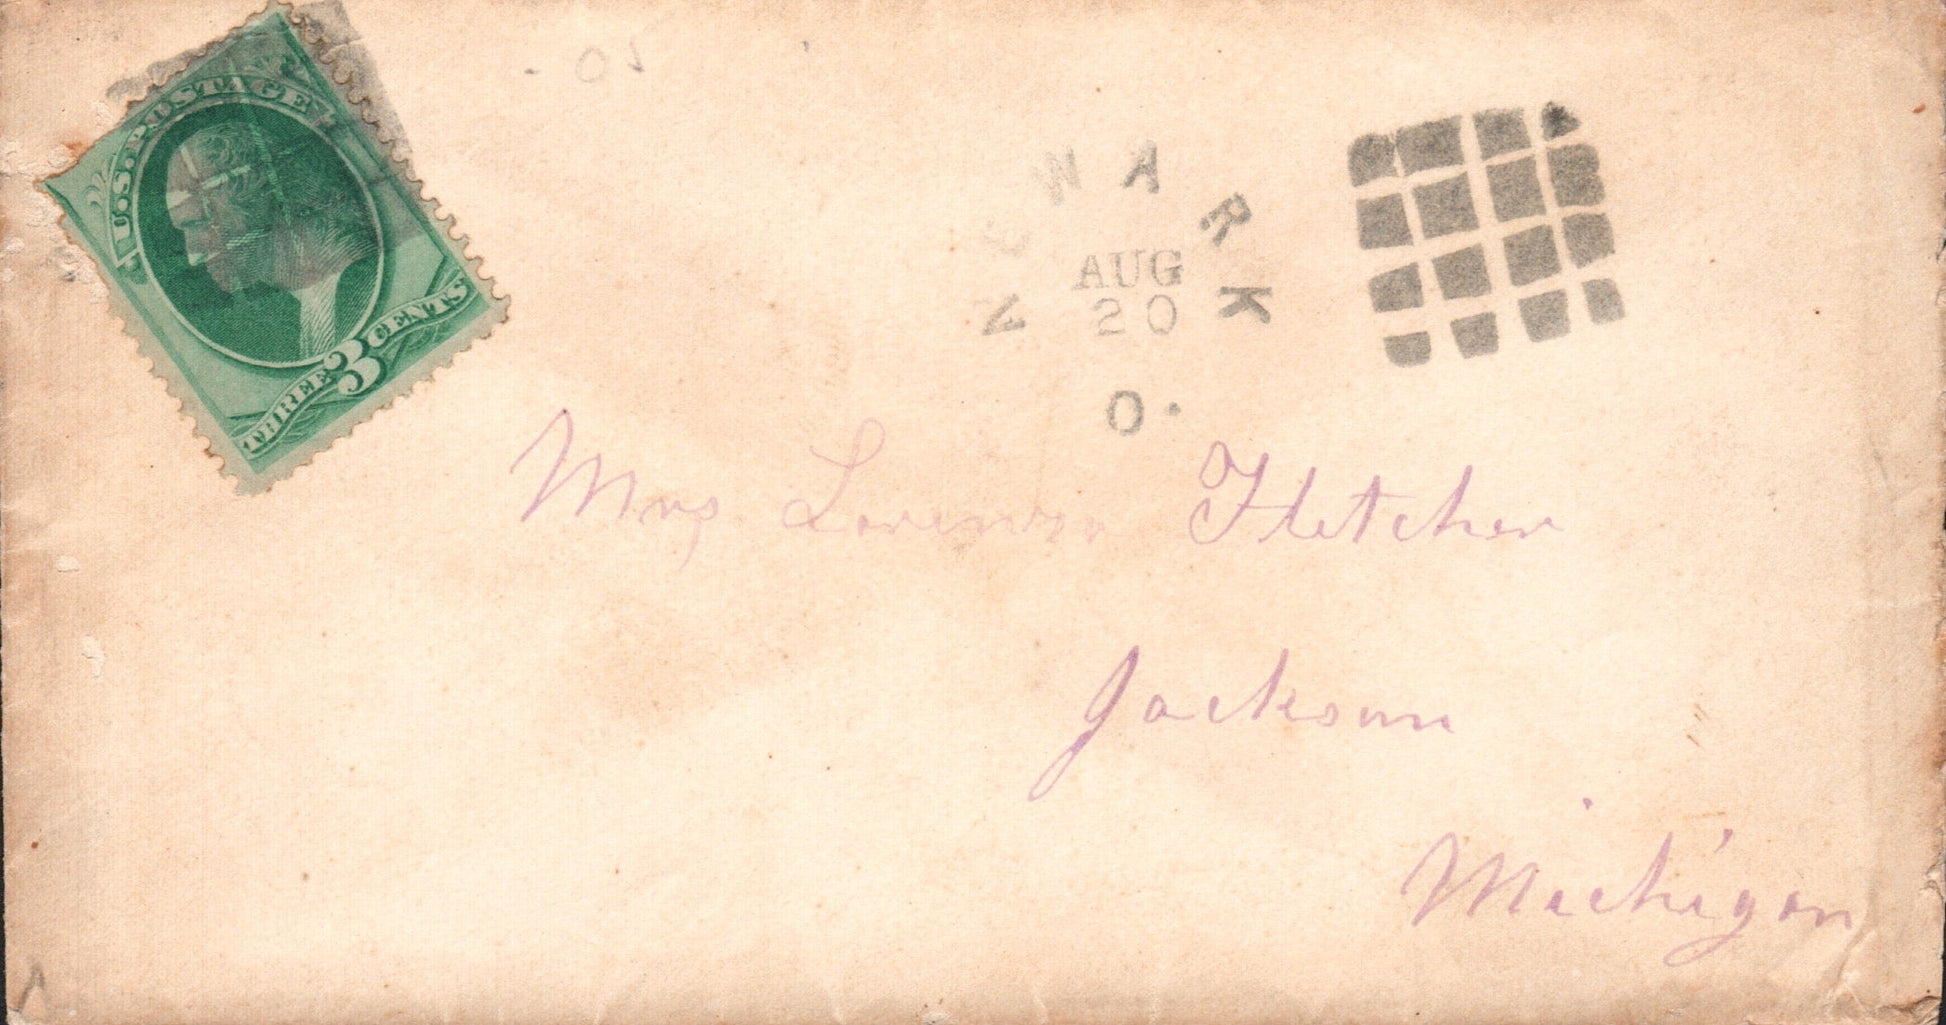 U.S. POSTAGE
THREE 3 CENTS
NEWARK
AUG
20
O.
Mrs Lorenzo Fletcher
Jackson
Michigan